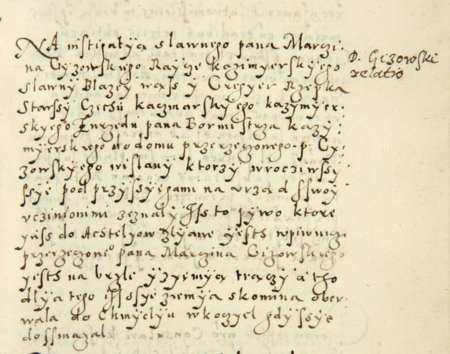 NA instigatyą slawnego pana Marczi
na Gyzowskyego Raycze kazimyerskyego
slawny Blazey wass y Gregyer Rzepka
Starssy Czechu kaczmarskyego kazymyer-
skyego zurzedu pana Bormistrza kazy
myerskyego do domu przerzeczonego p. Gy
zowskyego weslany ktorzy wroczywssy
ssye pod przyssyegami na urzad sswoy
uczinyonimi zeznaly Iss to pywo ktore
yass do Acstelyow zlyane yests wpiwniczi
przerzeczone pana Marczina Gizowskyego
yests na byle y zyemyą traczy a tho
dlya tego iss ssye zyemya skomina ober
wala do Chmyelyu w koczyel gdy ssye
dossmazal
D. Gizowski
relatio